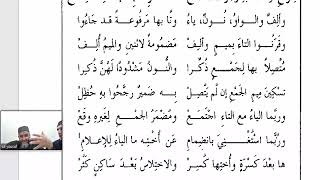 وألِفٌ والواوُ، نُـونٌ، ياءُ وتَا بها مَرفُوعةً قد جَاءُوا
وقَرَنُـوا التاءَ بميـمٍ وألِفْ مَضْمُومةً لاثنينِ والميمُ أُلِفْ
مُتَّصِلاً بها لِجَمْـعٍ ذُكِّرا والنُّـونُ مَشْدُودًا لَهُنَّ ذُكِرا
تَسْكِينُ مِيمِ الجَمْعِ إن لم يَتَّصِلْ به ضميرٌ رجَّحُوا بهِ حُظِلْ
ورُبَّما الواوُ مع التاءِ اجتَمَعْ ومُضْمَرُ الجَمْـعِ لِغيرِهِ وقَعْ
ورُبَّما اسْتُغْنِـيَ بانضِمامِ عَن أُخْتِـهِ ما الياءُ للإعلامِ
ها بعدَ كَسرةٍ وأُختِها كُسِرْ والاختِلاسُ بَعدَ ساكِنٍ كَثُرْ